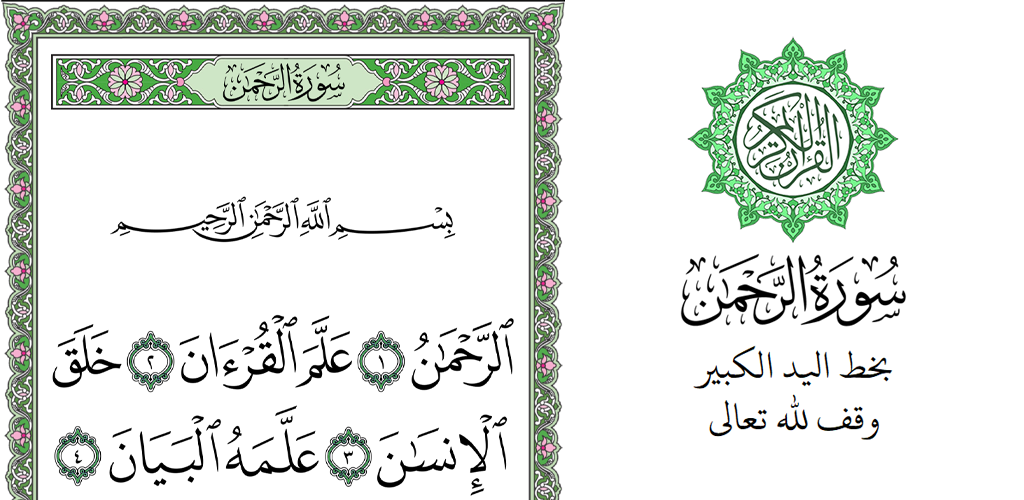 سُورَةُ الرَّحْمَٰن
بِسْمِ ٱللَّهِ ٱلرَّحْمَٰنِ ٱلرَّحِيمِ
ٱلرَّحْمَٰنُ ١ عَلَّمَ ٱلْقُرْءَانَ ٢ خَلَقَ
ٱلْإِنسَٰنَ ٣ عَلَّمَهُ ٱلْبَيَانَ ٤
القرآن الكريم
سُورَةُ الرَّحْمَٰن
بخط اليد الكبير
وقف لله تعالى